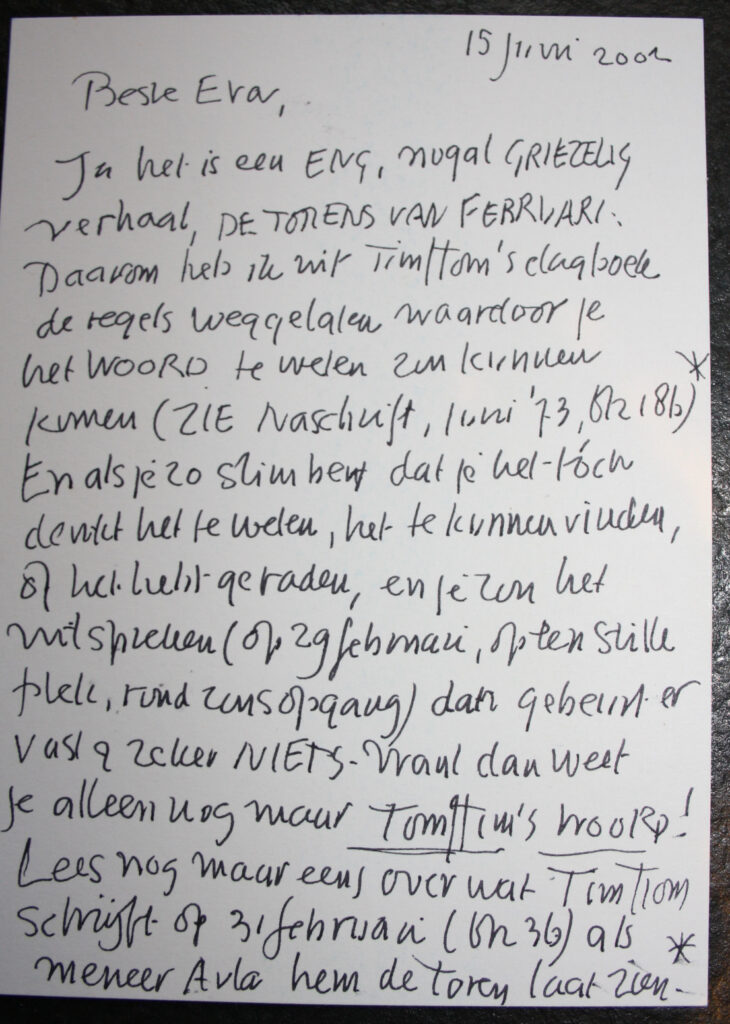 15 Juni 2001
Beste Eva,
Ja het is een ENG, nogal GRIEZELIG
verhaal, DE TORENS VAN FEBRUARI.
Daarom heb ik uit Tim/Tom's dagboek
de regels weggelaten waardoor je
het WOORD te weten zou kunnen
komen (ZIE Naschrift, juni '73, Blz 186) *
En als je zo slim bent dat je het tóch
denkt het te weten, het te kunnen vinden,
of het hebt geraden, en je zou het
uitspreken (op 29 februari, op een stille
plek, rond zonsopgang) dan gebeurt er
vast & zeker NIETS. Want dan weet
je alleen nog maar Tom/Tim's WOORD!
Lees nog maar eens over wat Tim/Tom
schrijft op 31 februari (Blz 36) als *
meneer Avla hem de Toren laat zien.